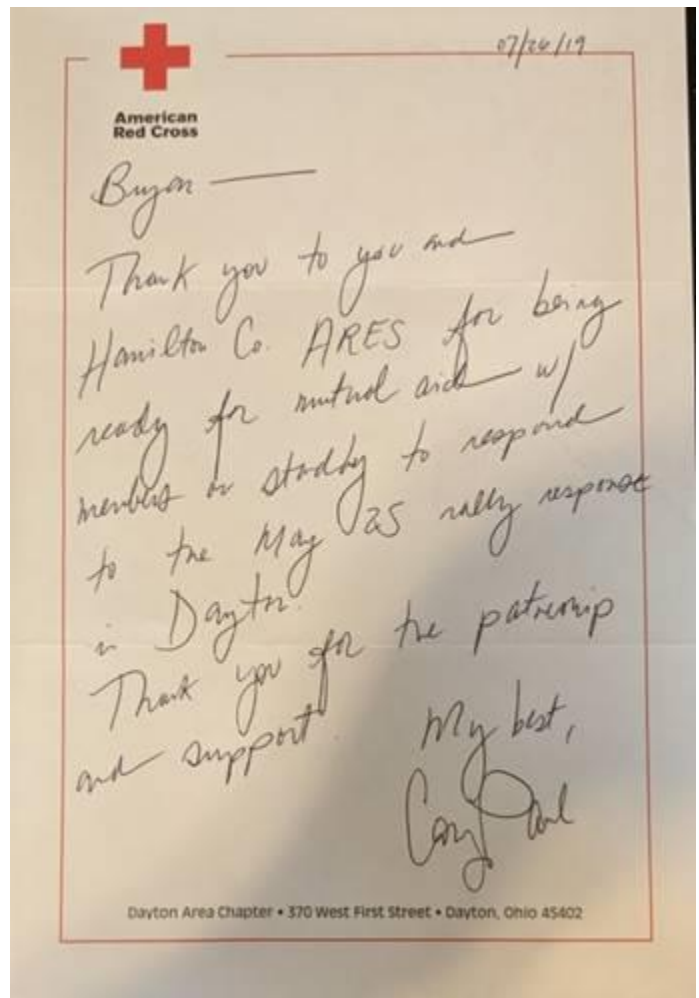 07/26/19
American
Red Cross
Bryan
Thank you to you and
Hamilton Co. ARES for being
ready for mutual aid w/
members on standby to respond
to the May 25 rally response
in Dayton.
Thank you for the
and support. My best,
Dayton Area Chapter • 370 West First Street • Dayton, Ohio 45402